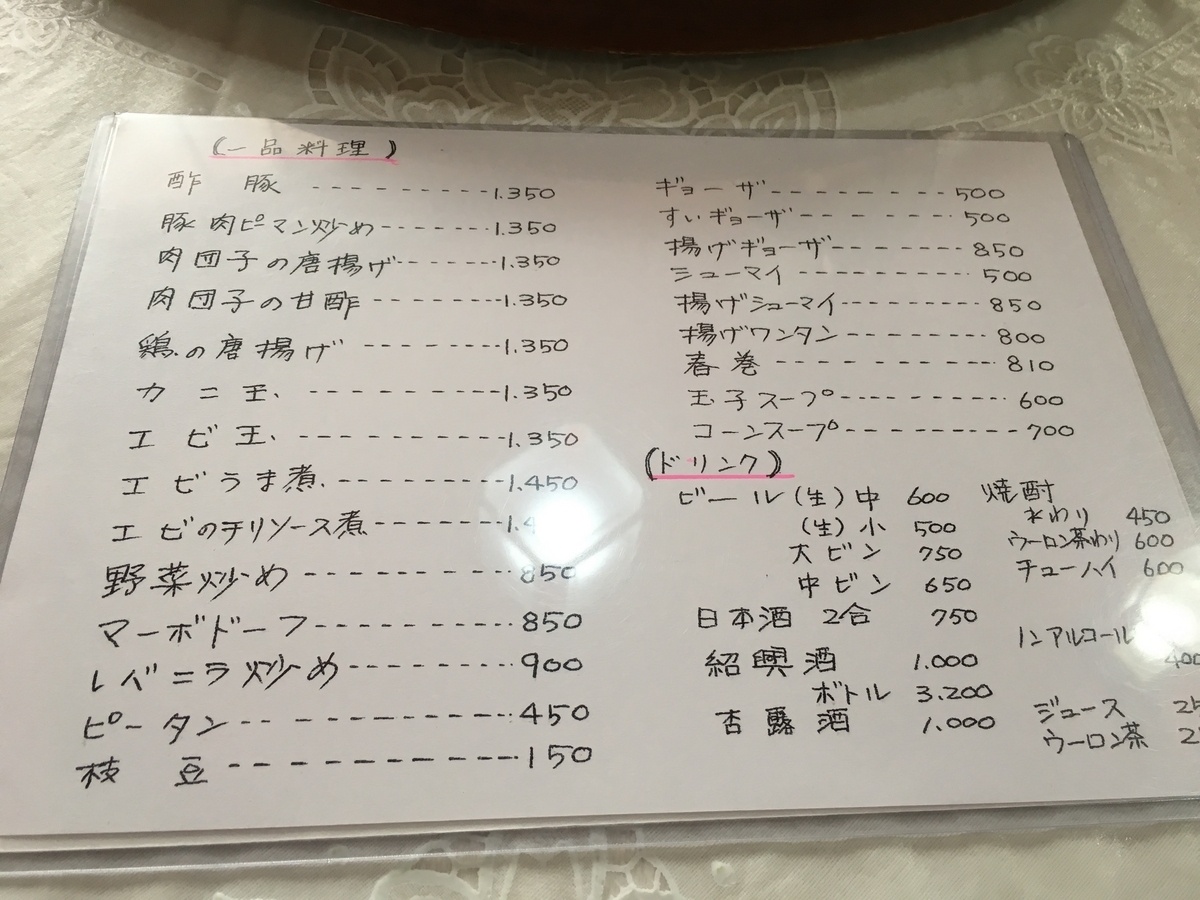 (一品料理)
酢豚 ---------1.350
豚肉ピーマン炒め-------1.350
肉団子の唐揚げ-------1.350
肉団子の甘酢 --------1.350
鶏の唐揚げ --------1.350
カニ玉 ----------1.350
エビ玉 -----------1.350
エビうま煮 ----------1.450
エビのチリソース煮--------
野菜炒め -----------850
マーボドーフ-----------850
レバニラ炒め----------900
ピータン--------------450
枝豆--------------150
ギョーザ----------500
すいギョーザ--------500
揚げギョーザ--------850
シューマイ----------500
揚げシューマイ---------850
揚げワンタン---------800
春巻 -----------810
玉子スープ----------600
コーンスープ----------700
(ドリンク)
ビール(生)中 600
(生)小 500
大ビン 750
中ビン 650
日本酒 2合 750
紹興酒 1.000
ボトル 3.200
杏露酒 1.000
焼酎
水わり 450
ウーロン茶わり 600
チューハイ 600
ノンアルコール
400
ジュース
ウーロン茶